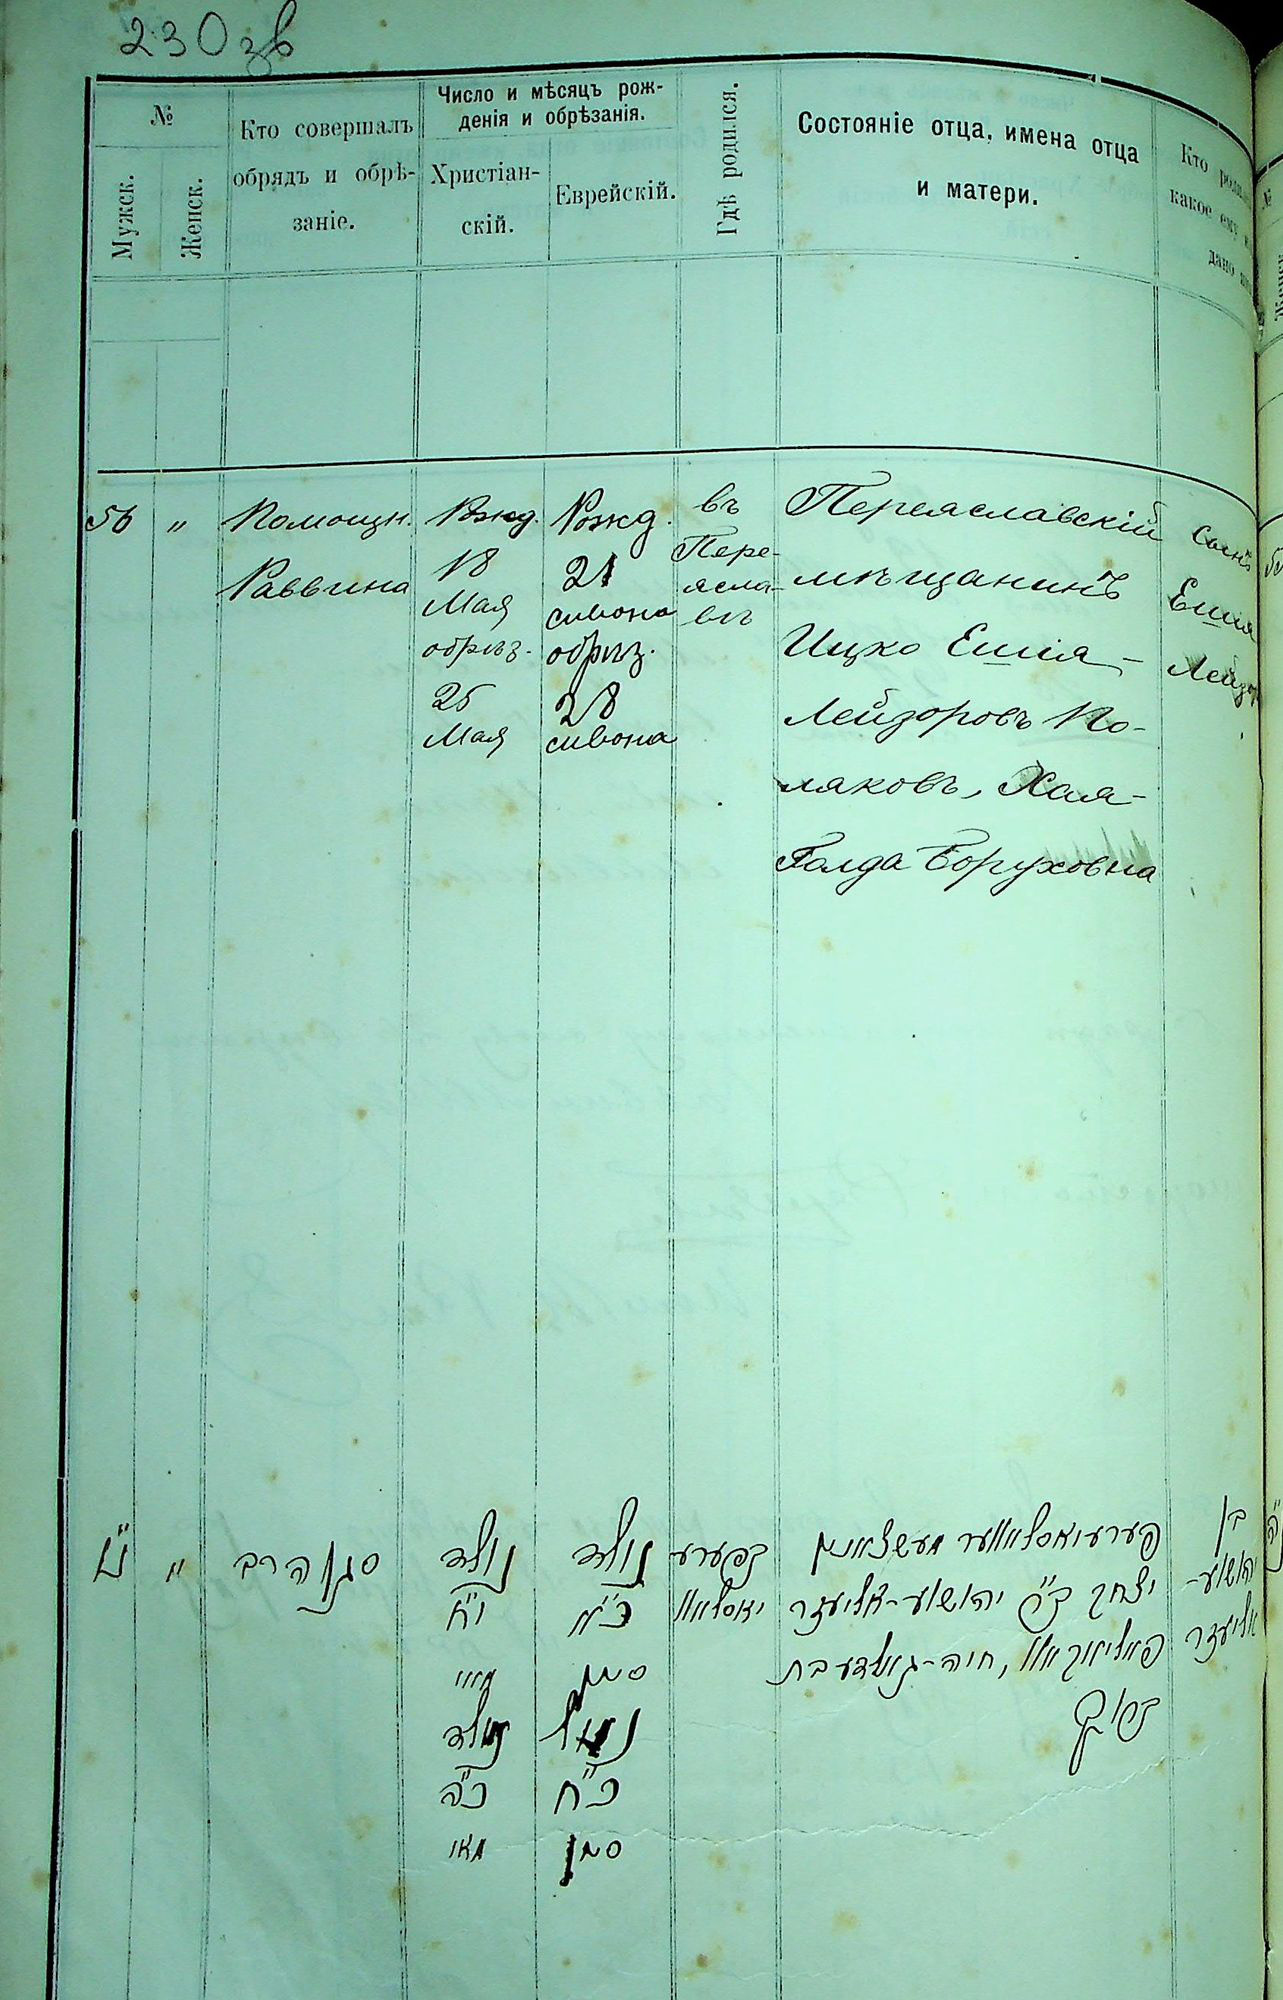 230 зв
№
Мужск.
Женск.
Кто совершалъ
обрядъ и обрѣ-
заніе.
Число и мѣсяцъ рож-
денія и обрѣзанія.
Христіан-
скій.
Еврейскій.
Гдѣ родился.
Состояніе отца, имена отца
и матери.
Кто
какое
дано
56 " Помощн.
Раввина
Рожд.
18
Мая
обрѣз.
25
Мая
Рожд.
21
сивона
обрѣз.
28
сивона
въ
Пере-
ясла-
вѣ
Переяславскій
мѣщанинъ
Ицко Ешія-
Лейзоровъ По-
ляковъ, Хая-
Голда Боруховна
сынъ
Ешія
Лейзор
"
סגן הרב
נולד
י"ח
מאי
כ"ה
מאי
נולד
כ"א
סיון
נמול
כ"ח
סיון
בפערע
יאסלאוו
פערעיאסלאווער מעשצאנין
יצחק ב"ר יהושע-אליעזר
פאליאקאוו, חיה-גאלדע בת
ברוך
בן
יהושע-
אליעזר